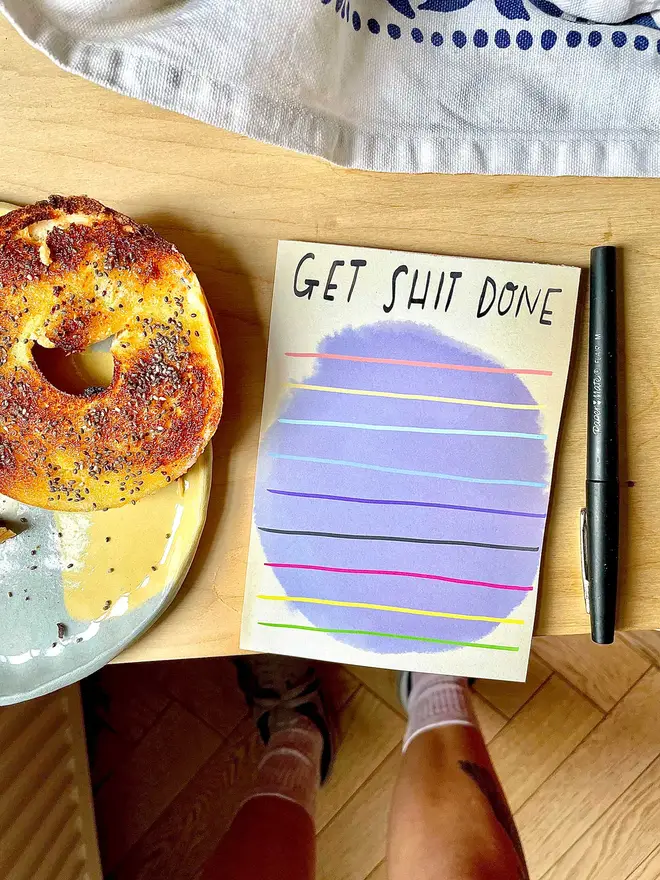 GET SHIT DONE
Paper Mate FLAIR M